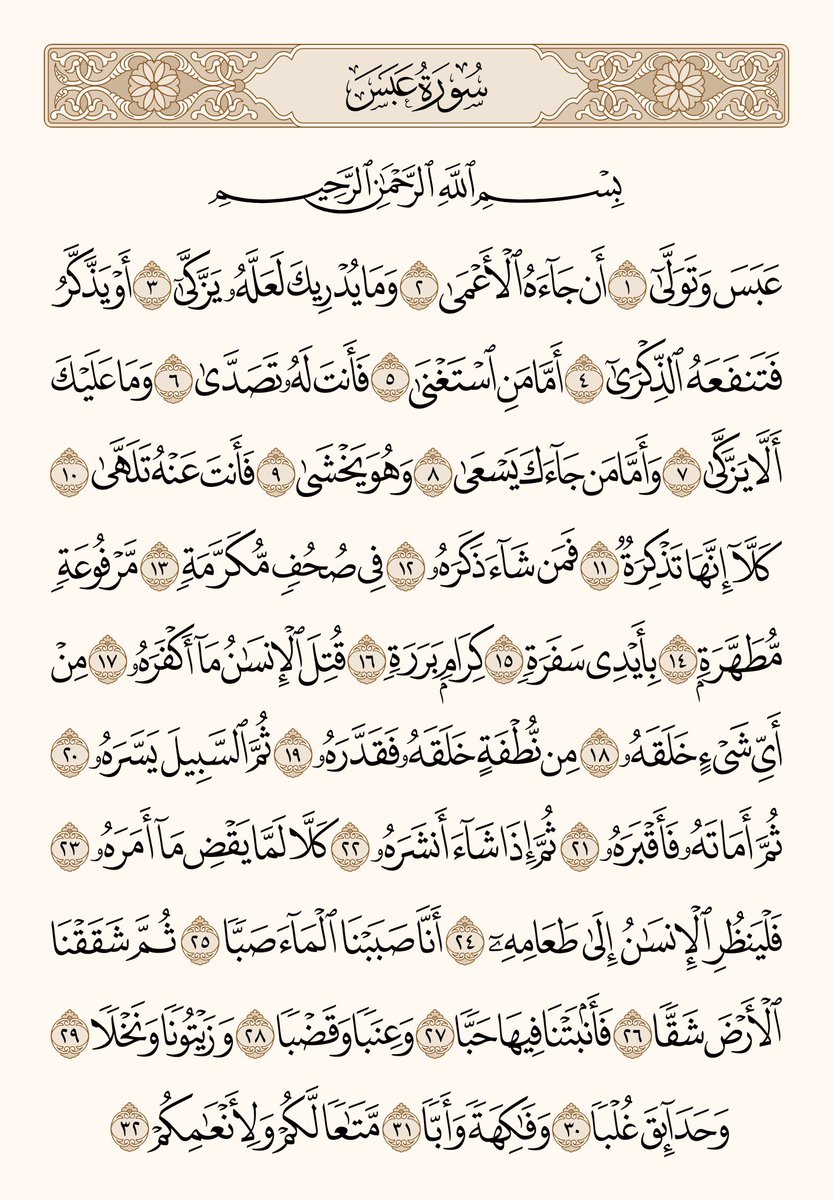 سُورَةُ عَبَسَ
بِسۡمِ ٱللَّهِ ٱلرَّحۡمَٰنِ ٱلرَّحِيمِ
عَبَسَ وَتَوَلَّىٰٓ ١ أَن جَآءَهُ ٱلۡأَعۡمَىٰ ٢ وَمَا يُدۡرِيكَ لَعَلَّهُۥ يَزَّكَّىٰٓ ٣ أَوۡ يَذَّكَّرُ
فَتَنفَعَهُ ٱلذِّكۡرَىٰٓ ٤ أَمَّا مَنِ ٱسۡتَغۡنَىٰ ٥ فَأَنتَ لَهُۥ تَصَدَّىٰ ٦ وَمَا عَلَيۡكَ
أَلَّا يَزَّكَّىٰ ٧ وَأَمَّا مَن جَآءَكَ يَسۡعَىٰ ٨ وَهُوَ يَخۡشَىٰ ٩ فَأَنتَ عَنۡهُ تَلَهَّىٰ ١٠
كَلَّآ إِنَّهَا تَذۡكِرَةٞ ١١ فَمَن شَآءَ ذَكَرَهُۥ ١٢ فِي صُحُفٖ مُّكَرَّمَةٖ ١٣ مَّرۡفُوعَةٖ
مُّطَهَّرَةِۭ ١٤ بِأَيۡدِي سَفَرَةٖ ١٥ كِرَامِۭ بَرَرَةٖ ١٦ قُتِلَ ٱلۡإِنسَٰنُ مَآ أَكۡفَرَهُۥ ١٧ مِنۡ
أَيِّ شَيۡءٍ خَلَقَهُۥ ١٨ مِن نُّطۡفَةٍ خَلَقَهُۥ فَقَدَّرَهُۥ ١٩ ثُمَّ ٱلسَّبِيلَ يَسَّرَهُۥ ٢٠
ثُمَّ أَمَاتَهُۥ فَأَقۡبَرَهُۥ ٢١ ثُمَّ إِذَا شَآءَ أَنشَرَهُۥ ٢٢ كَلَّا لَمَّا يَقۡضِ مَآ أَمَرَهُۥ ٢٣
فَلۡيَنظُرِ ٱلۡإِنسَٰنُ إِلَىٰ طَعَامِهِۦٓ ٢٤ أَنَّا صَبَبۡنَا ٱلۡمَآءَ صَبّٗا ٢٥ ثُمَّ شَقَقۡنَا
ٱلۡأَرۡضَ شَقّٗا ٢٦ فَأَنۢبَتۡنَا فِيهَا حَبّٗا ٢٧ وَعِنَبٗا وَقَضۡبٗا ٢٨ وَزَيۡتُونٗا وَنَخۡلٗا ٢٩
وَحَدَآئِقَ غُلۡبٗا ٣٠ وَفَٰكِهَةٗ وَأَبّٗا ٣١ مَّتَٰعٗا لَّكُمۡ وَلِأَنۡعَٰمِكُمۡ ٣٢